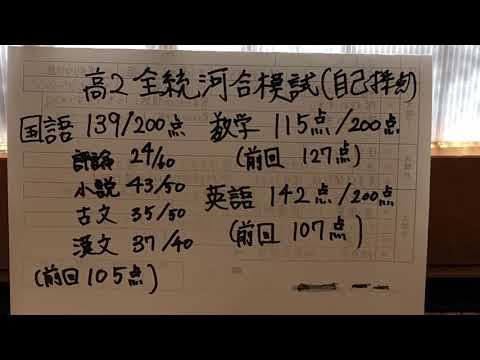 高2 全統河合模試(自己採点)
国語 139/200点
評論 24/60
小説 43/50
古文 35/50
漢文 37/40
(前回 105点)
数学 115点/200点
(前回 127点)
英語 142点/200点
(前回 107点)